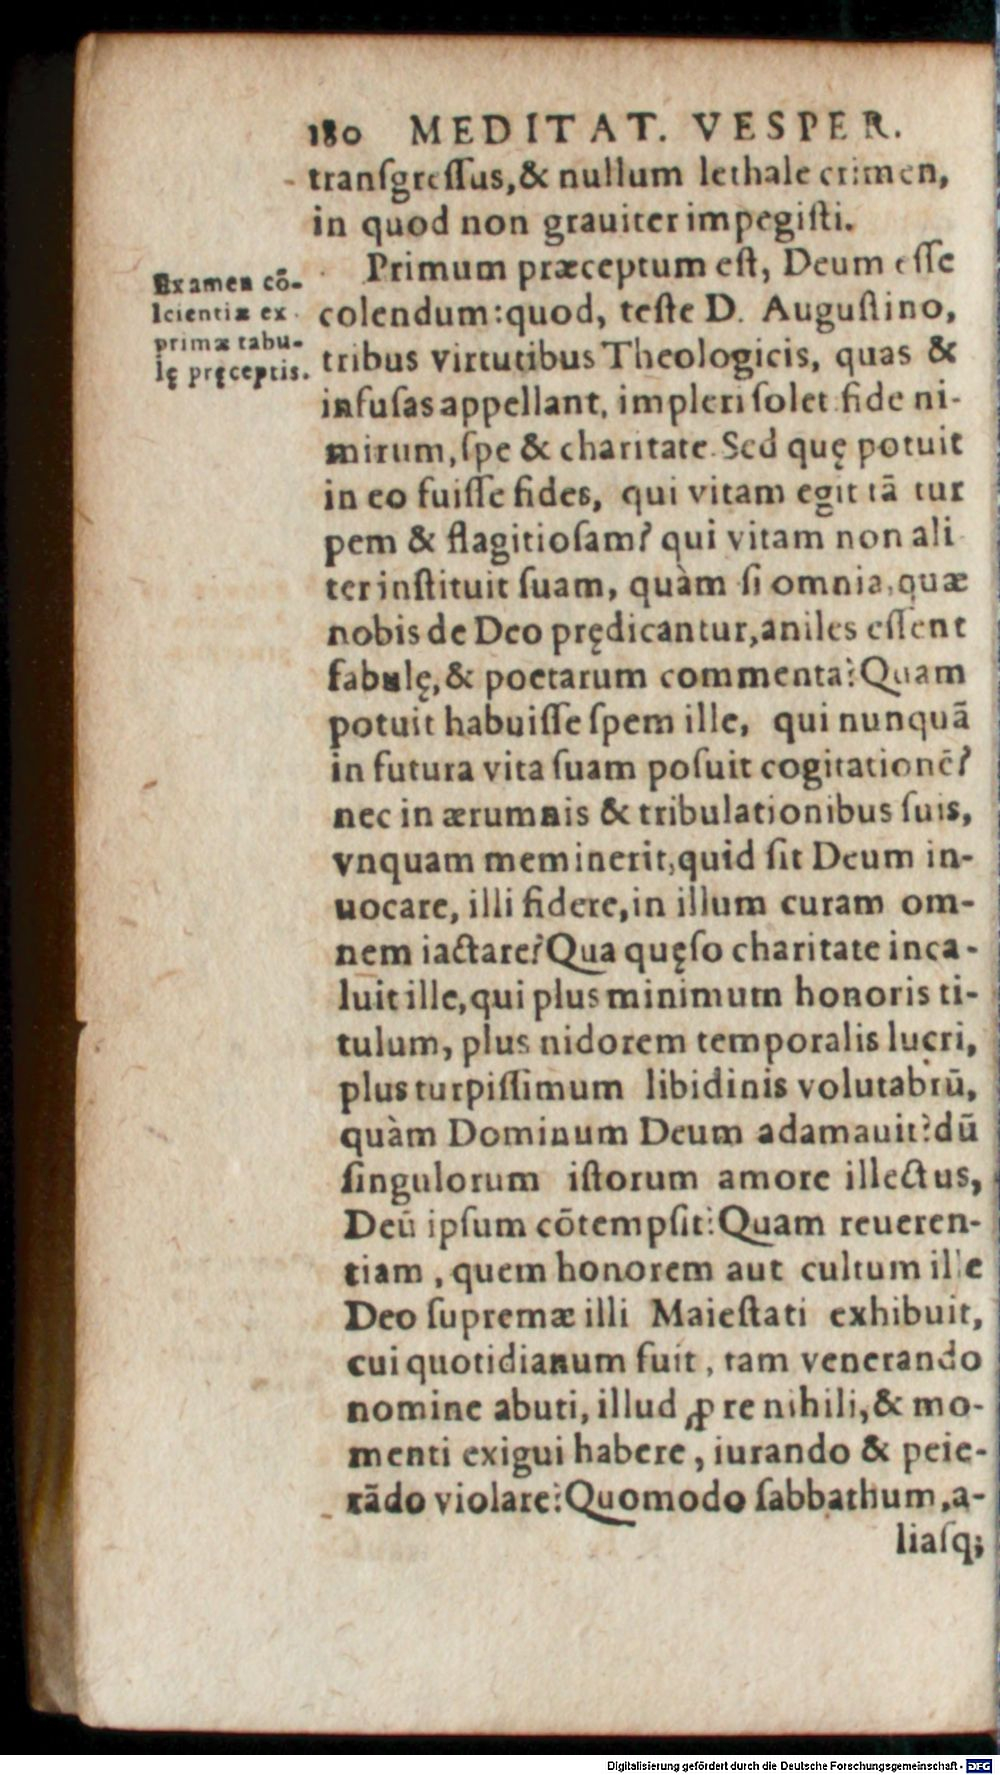 180 MEDITAT. VESPER.
tranſgreſſus,& nullum lethale crimen,
in quod non grauiter impegiſti.
Examen cō-
ſcientiæ ex
primæ tabu-
lę pręceptis.
Primum præceptum eſt, Deum eſſe
colendum:quod, teſte D. Auguſtino,
tribus virtutibus Theologicis, quas &
infuſas appellant, impleri ſolet fide ni-
mirum,ſpe & charitate. Sed quę potuit
in eo fuiſſe fides, qui vitam egit tā tur
pem & flagitioſam? qui vitam non ali
ter inſtituit ſuam, quàm ſi omnia, quæ
nobis de Deo prędicantur,aniles eſſent
fabulę,& poetarum commenta? Quam
potuit habuiſſe ſpem ille, qui nunquā
in futura vita ſuam poſuit cogitationē?
nec in ærumnis & tribulationibus ſuis,
vnquam meminerit,quid ſit Deum in-
uocare, illi fidere,in illum curam om-
nem iactare? Qua quęſo charitate inca-
luit ille,qui plus minimum honoris ti-
tulum, plus nidorem temporalis lucri,
plus turpiſſimum libidinis volutabrū,
quàm Dominum Deum adamauit? dū
ſingulorum iſtorum amore illectus,
Deū ipſum cōtempſit? Quam reueren-
tiam , quem honorem aut cultum ille
Deo ſupremæ illi Maieſtati exhibuit,
cui quotidianum fuit , tam venerando
nomine abuti, illud ꝓ re nihili,& mo-
menti exigui habere , iurando & peie-
rādo violare? Quomodo ſabbathum ,a-
liaſq;
Digitalisierung gefördert durch die Deutsche Forschungsgemeinschaft - DFG